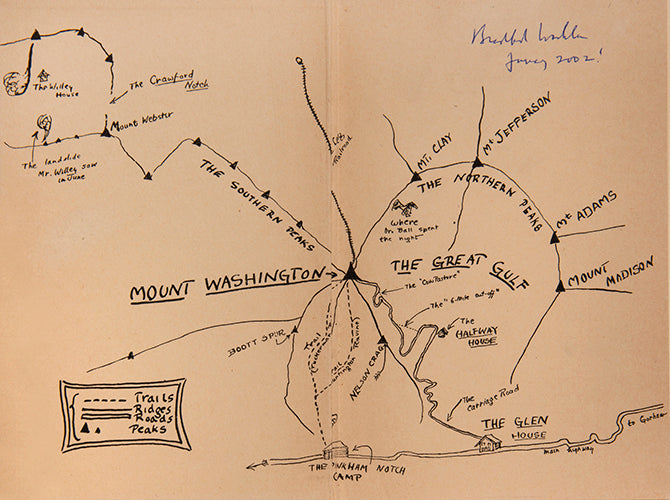 January 2002!
The Willey
House
The Crawford
Notch
Mount Webster
The landslide
Mr. Willey saw
in June
THE SOUTHERN PEAKS
Cog
Railroad
MT. CLAY
Mt JEFFERSON
THE NORTHERN PEAKS
Mt ADAMS
MOUNT MADISON
Where
Dr. Ball spent
the night
THE GREAT GULF
MOUNT WASHINGTON
The "Cow Pasture"
The "6-Mile cut-off"
The
HALFWAY
HOUSE
BOOTT SPUR
Trail
Tuckerman
Trail
Huntington Ravine
NELSON CRAG
The
Carriage Road
THE GLEN
HOUSE
to Gorham
main highway
THE PINKHAM NOTCH
CAMP
Trails
Ridges
Roads
Peaks